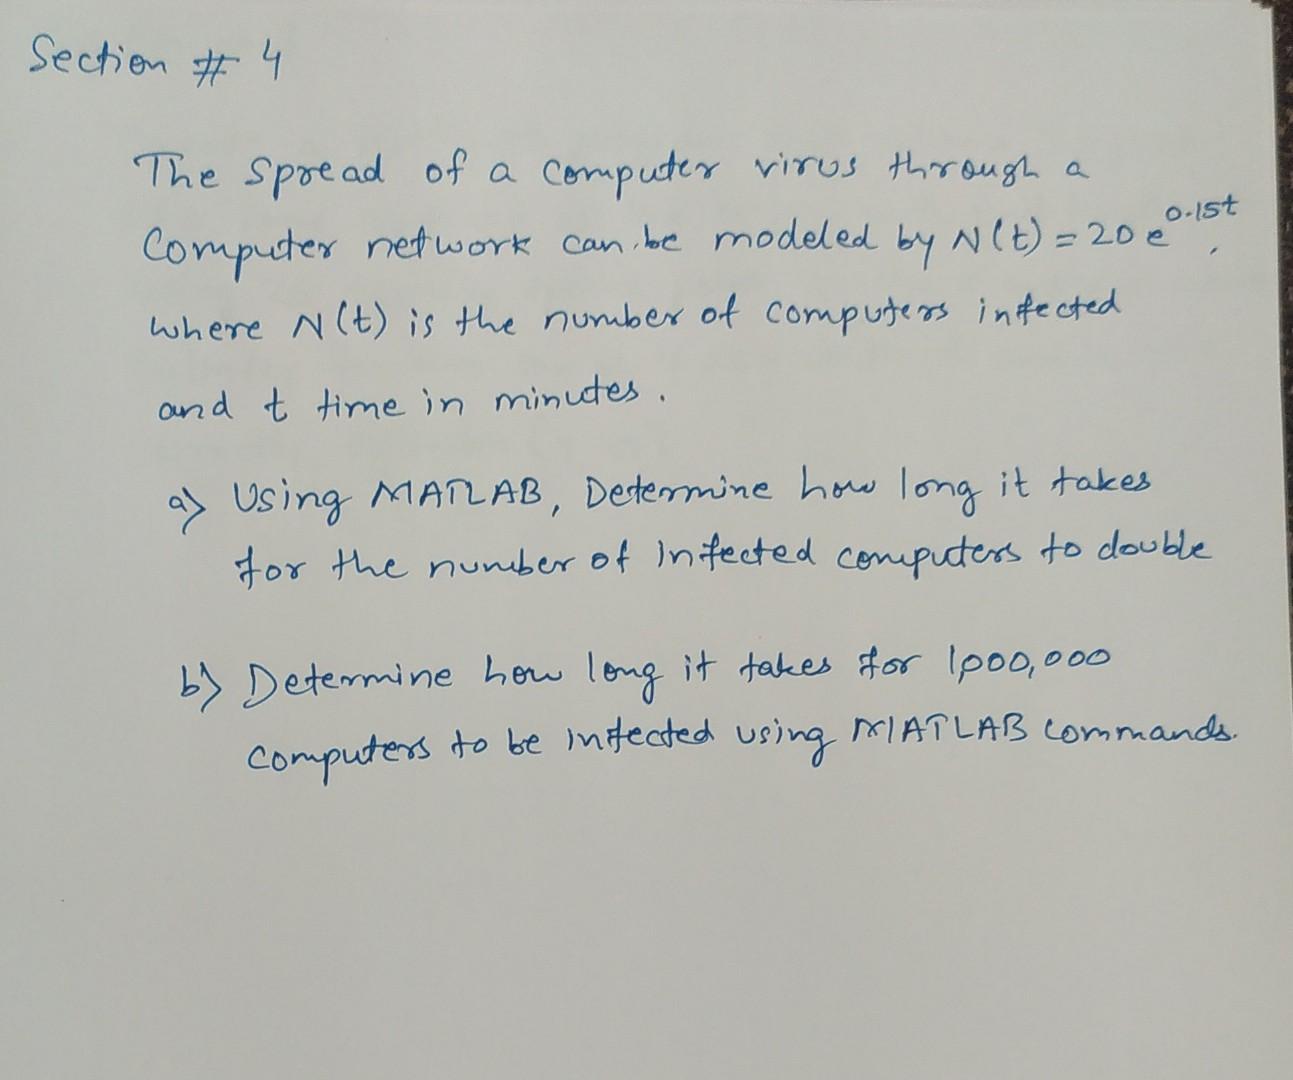 Section # 4
The spread of a computer virus through a
Computer network can be modeled by N(t) = 20 e^0.15t,
where N(t) is the number of computers infected
and t time in minutes.
a) Using MATLAB, Determine how long it takes
for the number of infected computers to double
b) Determine how long it takes for 1,000,000
computers to be infected using MATLAB commands.